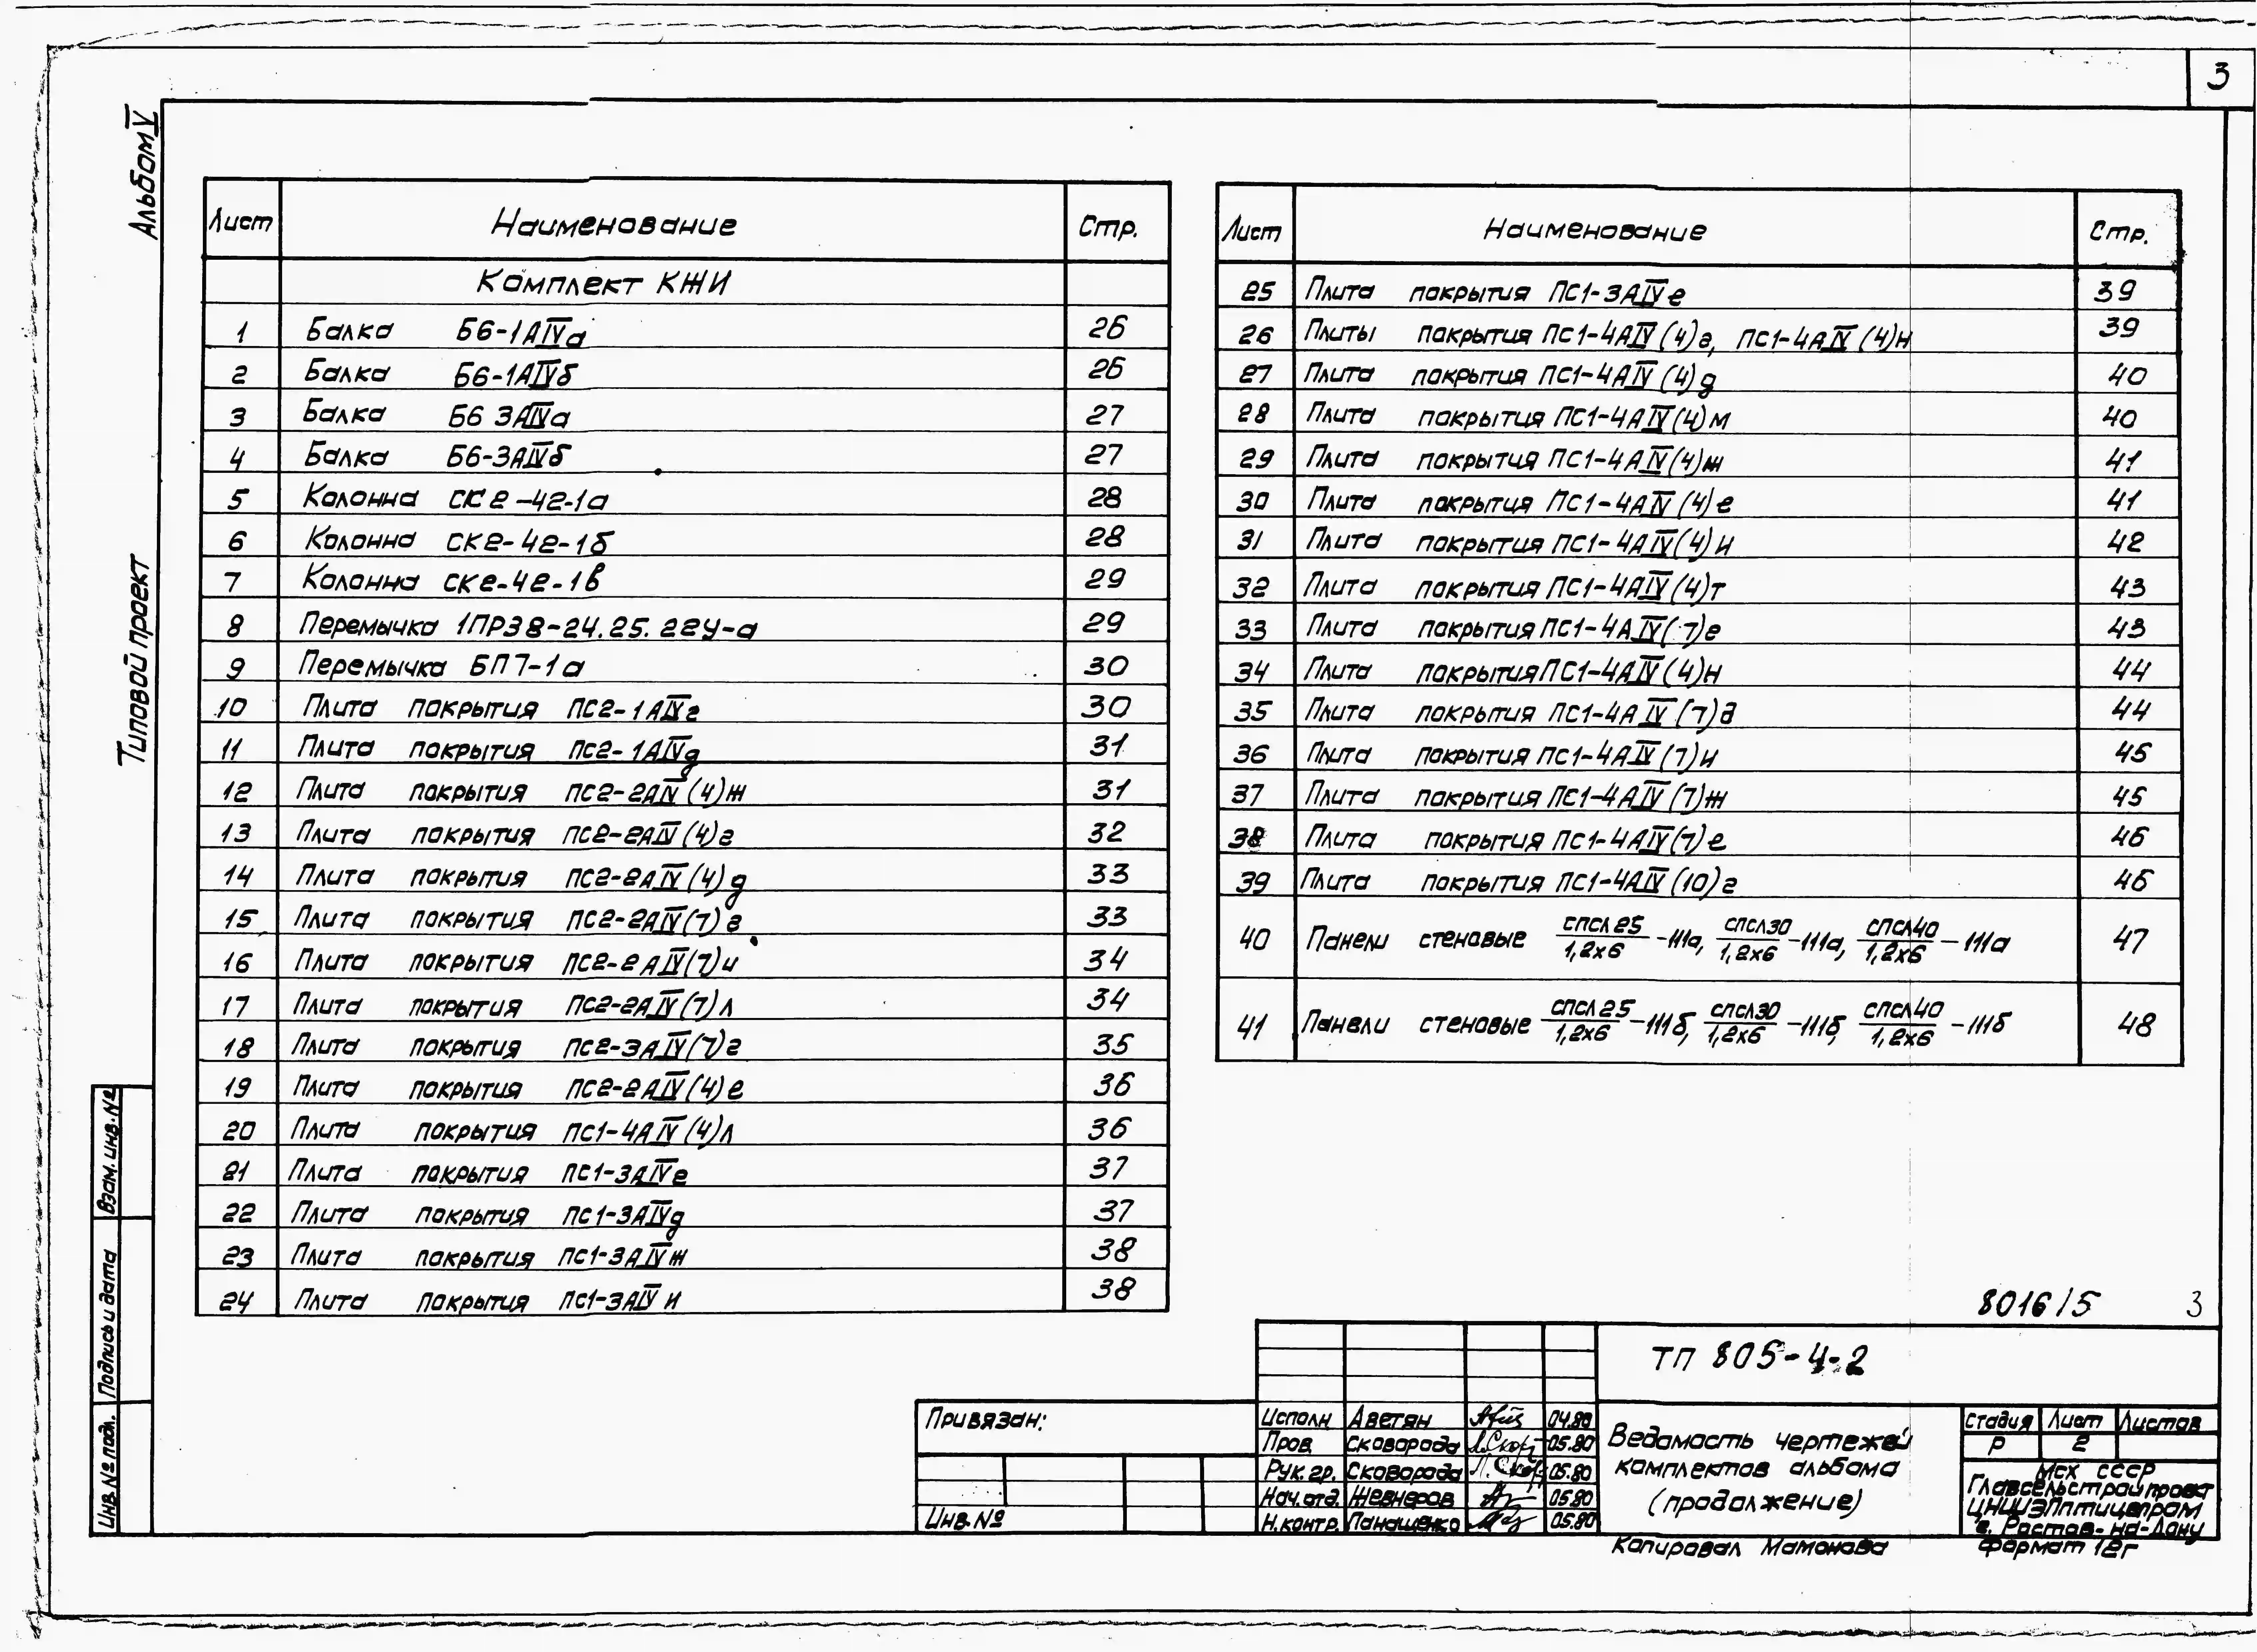 3
Альбом V
Типовой проект
Лист Наименование Стр.
Комплект КЖИ
1 Балка Б6-1АIVа 26
2 Балка Б6-1АIVб 26
3 Балка Б6 3АIVа 27
4 Балка Б6-3АIVб 27
5 Колонна СК2-42-1а 28
6 Колонна СК2-42-1б 28
7 Колонна СК2-42-1в 29
8 Перемычка 1ПР38-24.25.22У-а 29
9 Перемычка БП7-1а 30
10 Плита покрытия ПС2-1АIVг 30
11 Плита покрытия ПС2-1АIVд 31
12 Плита покрытия ПС2-2АIV(4)ж 31
13 Плита покрытия ПС2-2АIV(4)г 32
14 Плита покрытия ПС2-2АIV(4)д 33
15 Плита покрытия ПС2-2АIV(7)г 33
16 Плита покрытия ПС2-2АIV(7)и 34
17 Плита покрытия ПС2-2АIV(7)л 34
18 Плита покрытия ПС2-3АIV(7)г 35
19 Плита покрытия ПС2-2АIV(4)е 36
20 Плита покрытия ПС1-4АIV(4)л 36
21 Плита покрытия ПС1-3АIVе 37
22 Плита покрытия ПС1-3АIVд 37
23 Плита покрытия ПС1-3АIVж 38
24 Плита покрытия ПС1-3АIVи 38
Лист Наименование Стр.
25 Плита покрытия ПС1-3АIVе 39
26 Плиты покрытия ПС1-4АIV(4)г, ПС1-4АIV(4)н 39
27 Плита покрытия ПС1-4АIV(4)д 40
28 Плита покрытия ПС1-4АIV(4)м 40
29 Плита покрытия ПС1-4АIV(4)ж 41
30 Плита покрытия ПС1-4АIV(4)е 41
31 Плита покрытия ПС1-4АIV(4)и 42
32 Плита покрытия ПС1-4АIV(4)т 43
33 Плита покрытия ПС1-4АIV(7)е 43
34 Плита покрытия ПС1-4АIV(4)н 44
35 Плита покрытия ПС1-4АIV(7)д 44
36 Плита покрытия ПС1-4АIV(7)и 45
37 Плита покрытия ПС1-4АIV(7)ж 45
38 Плита покрытия ПС1-4АIV(7)е 46
39 Плита покрытия ПС1-4АIV(10)г 46
40 Панели стеновые СПСЛ25/1,2х6-111а, СПСЛ30/1,2х6-111а, СПСЛ40/1,2х6-111а 47
41 Панели стеновые СПСЛ25/1,2х6-111б, СПСЛ30/1,2х6-111б, СПСЛ40/1,2х6-111б 48
8016/5 3
Взам. инв. №
Подпись и дата
Инв. № подл.
Привязан:
Инв. №
Исполн. Аветян 04.80
Пров. Сковорода 05.80
Рук. гр. Сковорода 05.80
Нач. отд. Жевнеров 05.80
Н. контр. Панащенко 05.80
ТП 805-4-2
Ведомость чертежей
комплектов альбома
(продолжение)
Стадия Лист Листов
Р 2
МСХ СССР
Главсельстройпроект
ЦНИИЭПптицепром
г. Ростов-на-Дону
Копировал Мамонова
Формат 12г